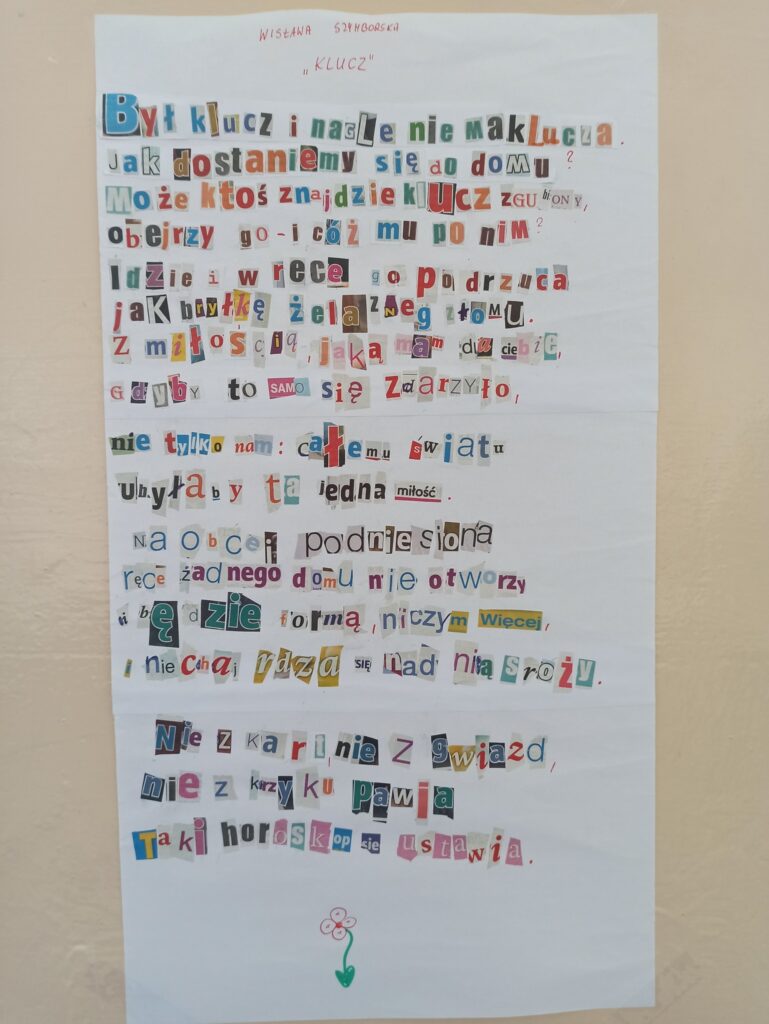 WISŁAWA SZYMBORSKA
„KLUCZ"
Był klucz i nagle nie ma klucza.
Jak dostaniemy się do domu?
Może ktoś znajdzie klucz zgubiony,
obejrzy go - i cóż mu po nim?
Idzie i w ręce go podrzuca
jak bryłkę żelaznego złomu.
Z miłością, jaką mam dla ciebie,
Gdyby to samo się zdarzyło,
nie tylko nam: całemu światu
ubyłaby ta jedna miłość.
Na obcej podniesiona
ręce żadnego domu nie otworzy
i będzie formą, niczym więcej,
i niechaj rdza się nad nią sroży.
Nie z kart, nie z gwiazd,
nie z krzyku pawia
Taki horoskop się ustawia.